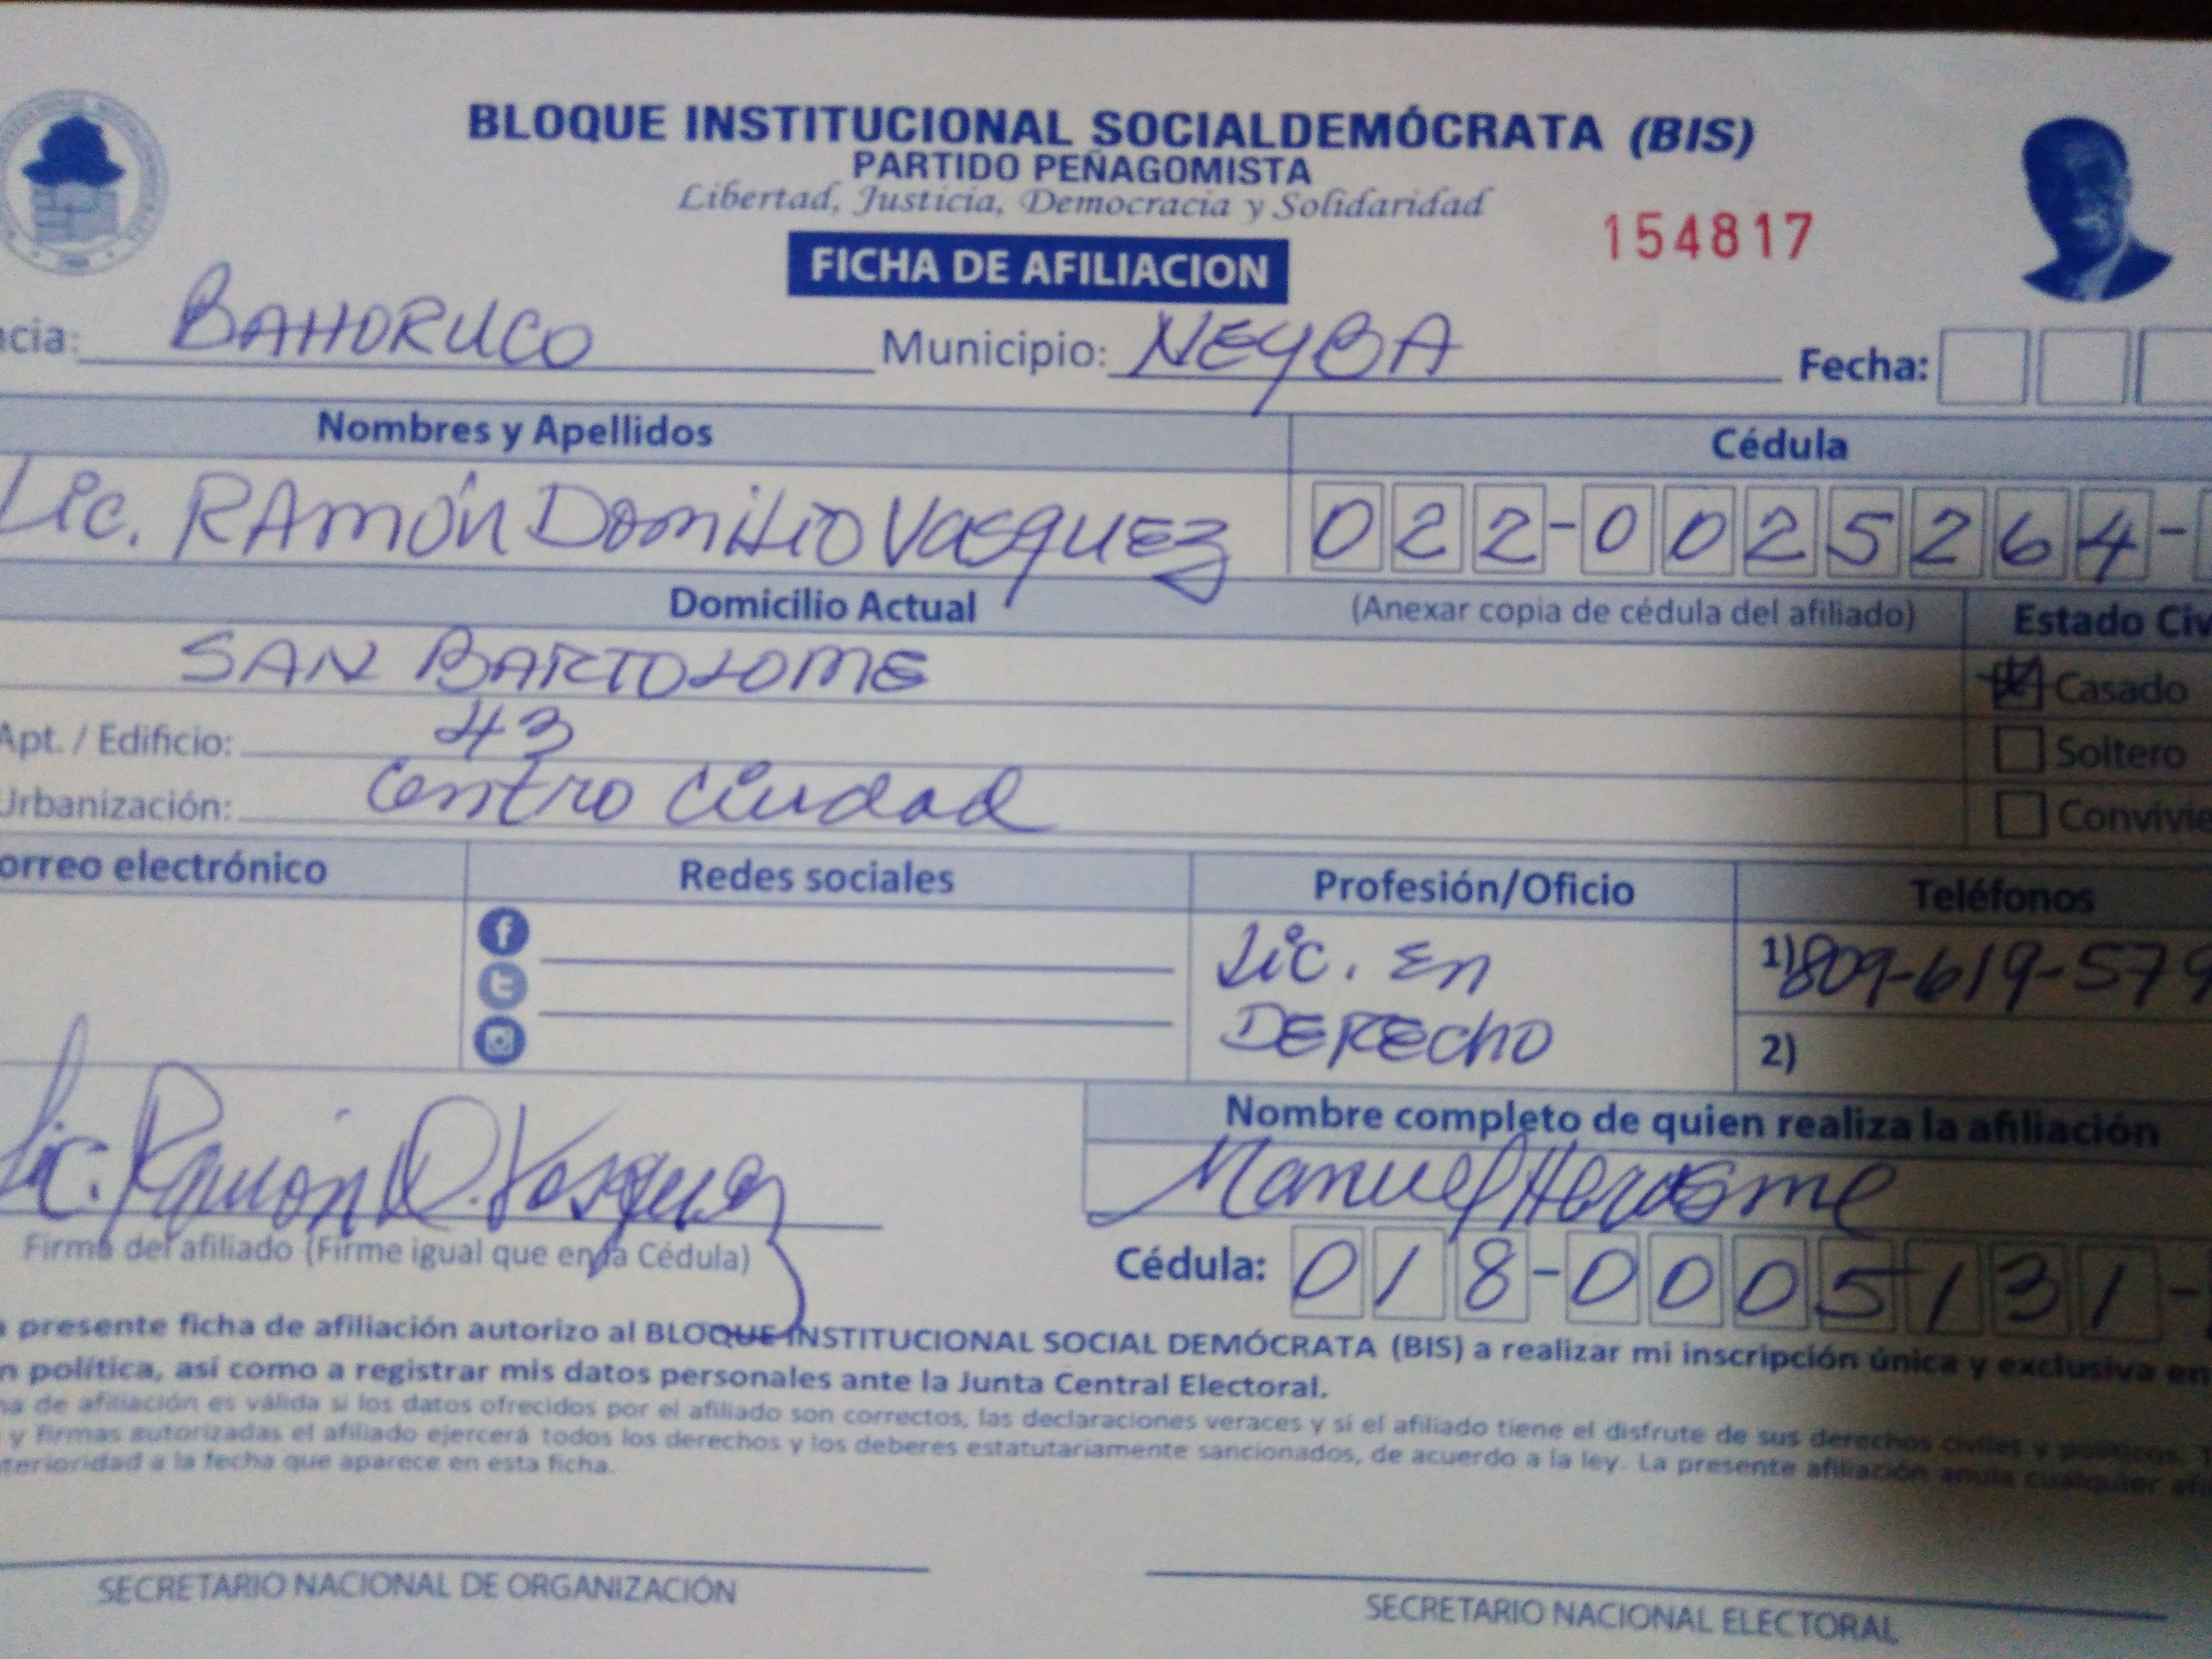 BLOQUE INSTITUCIONAL SOCIALDEMÓCRATA (BIS)
PARTIDO PEÑAGOMISTA
Libertad, Justicia, Democracia y Solidaridad
154817
FICHA DE AFILIACION
ncia: BAHORUCO Municipio: NEYBA Fecha:
Nombres y Apellidos Cédula
Lic. RAMÓN DOMILIO VASQUEZ 022-0025264-
Domicilio Actual (Anexar copia de cédula del afiliado) Estado Civ
SAN BARTOLOME Casado
Apt. / Edificio: 43 Soltero
Urbanización: Centro Ciudad Convivie
orreo electrónico Redes sociales Profesión/Oficio Teléfonos
Lic. En 1) 809-619-579
DERECHO 2)
Lic. Ramón D. Vasquez
Nombre completo de quien realiza la afiliación
Manuel Herasme
Firma del afiliado (Firme igual que en la Cédula) Cédula: 018-0005131-
presente ficha de afiliación autorizo al BLOQUE INSTITUCIONAL SOCIAL DEMÓCRATA (BIS) a realizar mi inscripción única y exclusiva en
n política, así como a registrar mis datos personales ante la Junta Central Electoral.
ha de afiliación es válida si los datos ofrecidos por el afiliado son correctos, las declaraciones veraces y si el afiliado tiene el disfrute de sus derechos civiles y políticos.
y firmas autorizadas el afiliado ejercerá todos los derechos y los deberes estatutariamente sancionados, de acuerdo a la ley. La presente afiliación anula cualquier
terioridad a la fecha que aparece en esta ficha.
SECRETARIO NACIONAL DE ORGANIZACIÓN SECRETARIO NACIONAL ELECTORAL